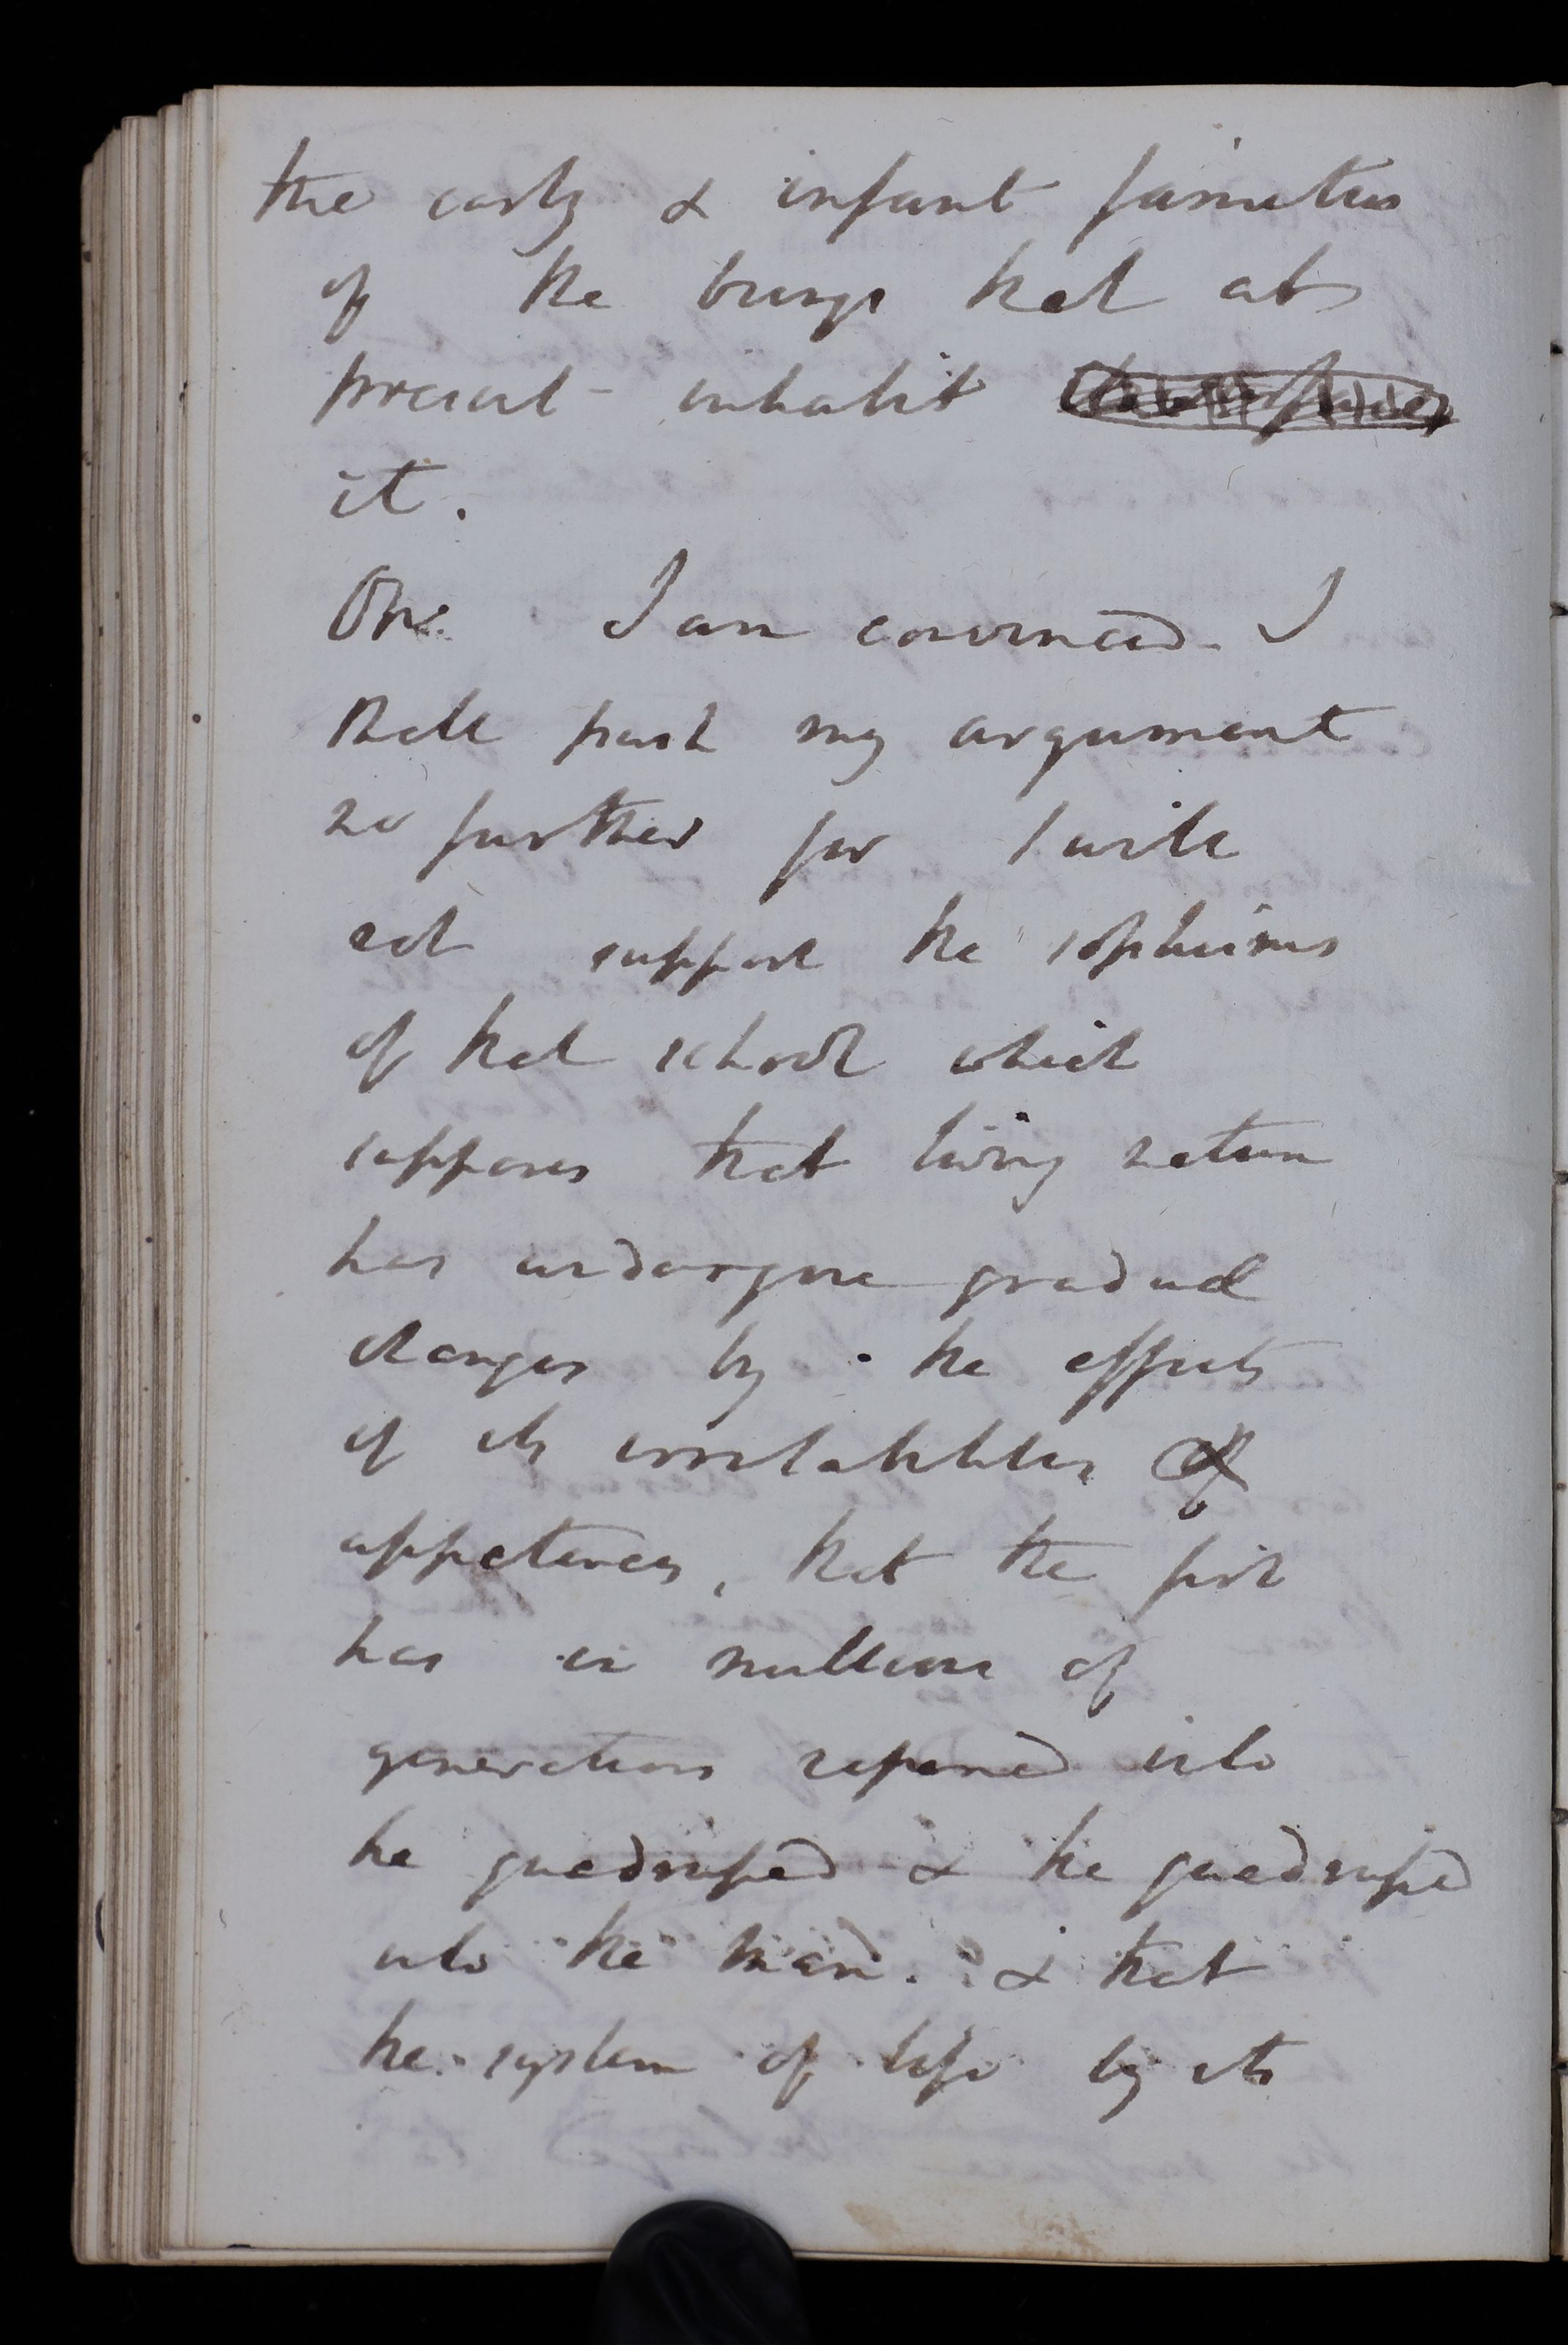 the early & infant families
of the beings that at
present - inhabit
it.
One I am convinced. I
shall push my argument
no further for I will
not support the sophisms
of that school which
supposes that living nature
has undergone gradual
changes by the effects
of its irritabilities &
appetencies, that the fish
has in millions of
generations ripened into
the quadruped & the quadruped
into the man. & that
the system of life by its